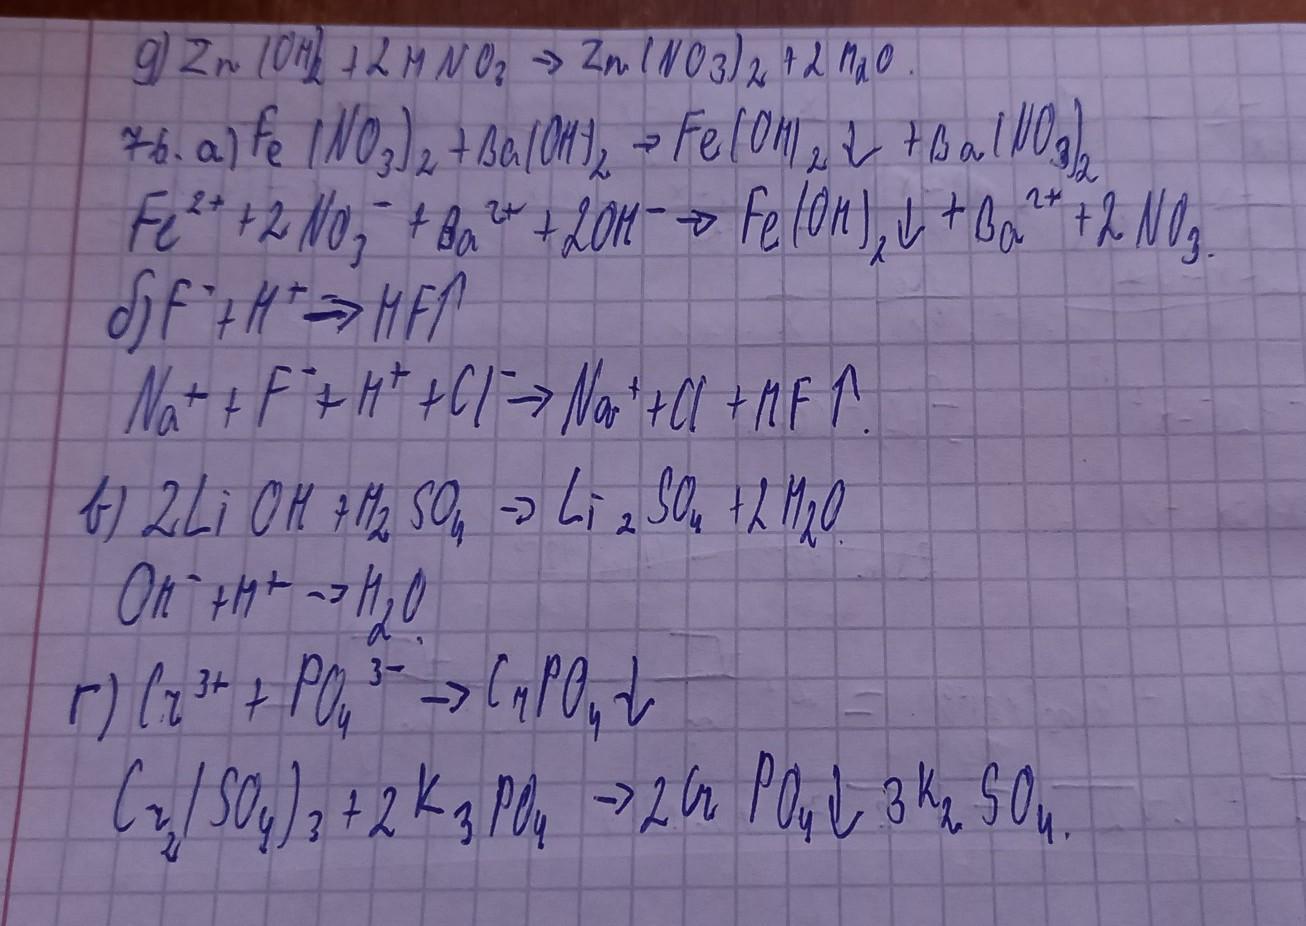 д) Zn(OH)2 + 2HNO3 → Zn(NO3)2 + 2H2O.
76. а) Fe(NO3)2 + Ba(OH)2 → Fe(OH)2↓ + Ba(NO3)2
Fe²⁺ + 2NO3⁻ + Ba²⁺ + 2OH⁻ → Fe(OH)2↓ + Ba²⁺ + 2NO3.
б) F⁻ + H⁺ ⇒ HF↑
Na⁺ + F⁻ + H⁺ + Cl⁻ → Na⁺ + Cl + HF↑.
в) 2LiOH + H2SO4 → Li2SO4 + 2H2O.
OH⁻ + H⁺ → H2O.
г) Cr³⁺ + PO4³⁻ → CrPO4↓
Cr2(SO4)3 + 2K3PO4 → 2CrPO4↓ 3K2SO4.